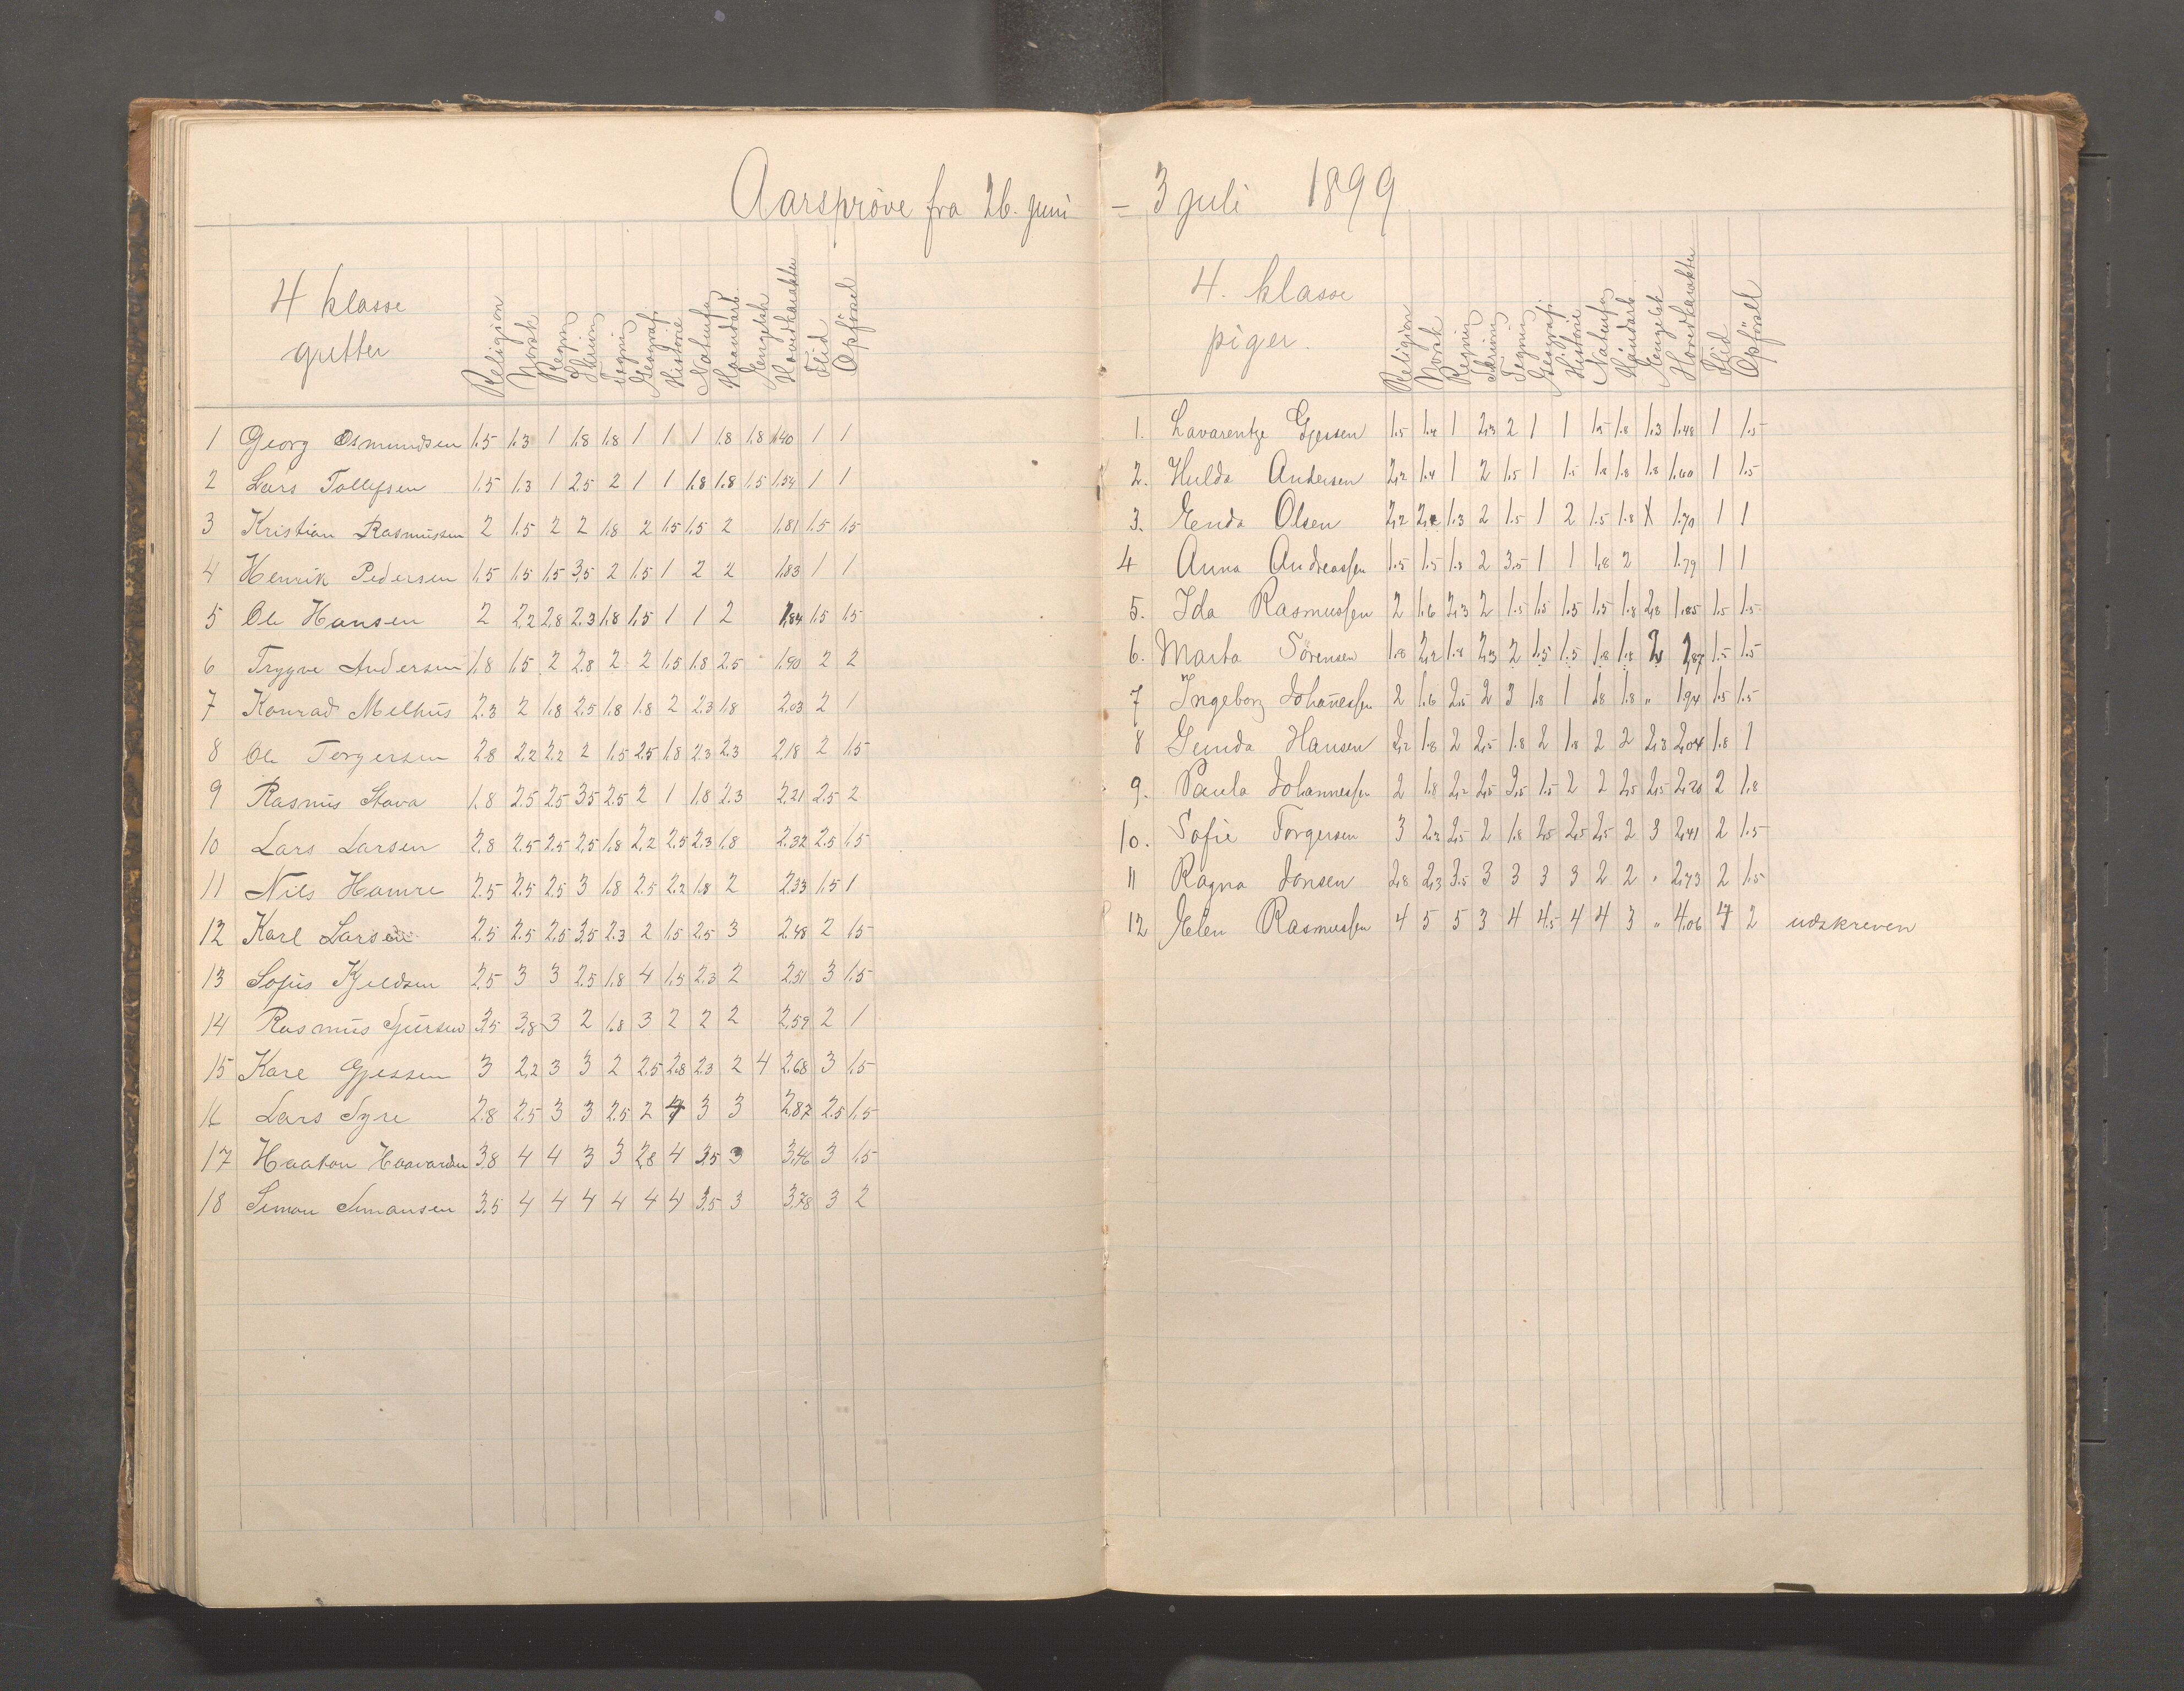 Aarsprøve fra 26. juni – 3 juli 1899
4 klasse
gutter
Religion Norsk Regnin Skrivnin Tegnin Geografi Historie Naturfag Haandarb. Eengelsk Hovedkarakter Flid Opførsel
1 Georg Osmundsen 1.5 1.3 1 1.8 1.8 1 1 1 1.8 1.8 1.40 1 1
2 Lars Tollefsen 1.5 1.3 1 2.5 2 1 1 1.8 1.8 1.5 1.54 1 1
3 Kristian Rasmussen 2 1.5 2 2 1.8 2 1.5 1.5 2 1.81 1.5 1.5
4 Henrik Pedersen 1.5 1.5 1.5 3.5 2 1.5 1 2 2 1.83 1 1
5 Ole Hansen 2 2.2 2.8 2.3 1.8 1.5 1 1 2 1.84 1.5 1.5
6 Trygve Andersen 1.8 1.5 2 2.8 2 2 1.5 1.8 2.5 1.90 2 2
7 Konrad Melhus 2.3 2 1.8 2.5 1.8 1.8 2 2.3 1.8 2.03 2 1
8 Ole Torgersen 2.8 2.2 2.2 2 1.5 2.5 1.8 2.3 2.3 2.18 2 1.5
9 Rasmus Stava 1.8 2.5 2.5 3.5 2.5 2 1 1.8 2.3 2.21 2.5 2
10 Lars Larsen 2.8 2.5 2.5 2.5 1.8 2.2 2.5 2.3 1.8 2.32 2.5 1.5
11 Nils Hamre 2.5 2.5 2.5 3 1.8 2.5 2.2 1.8 2 2.33 1.5 1
12 Karl Larsen 2.5 2.5 2.5 3.5 2.3 2 1.5 2.5 3 2.48 2 1.5
13 Sofus Kjeldsen 2.5 3 3 2.5 1.8 4 1.5 2.3 2 2.51 3 1.5
14 Rasmus 3.5 3.8 3 2 1.8 3 2 2 2 2.59 2 1
15 Karl Gjessen 3 2.2 3 3 2 2.5 2.8 2.3 2 4 2.68 3 1.5
16 Lars Syre 2.8 2.5 3 3 2.5 2 4 3 3 2.87 2.5 1.5
17 Haakon Haavardsen 3.8 4 4 3 3 2.8 4 3.5 3 3.46 3 1.5
18 Simon Simonsen 3.5 4 4 4 4 4 4 3.5 3 3.78 3 2
4. klasse
piger.
Religion Norsk Regnin Skrivnin Tegnin Geografi. Historie Naturfag Håndarb. Eengelsk Hovedkarakter Flid Opførsel
1. Lavarentze Gjessen 1.5 1.4 1 2.3 2 1 1 1.5 1.8 1.3 1.48 1 1.5
2. Hulda Andersen 2.2 1.4 1 2 1.5 1 1.5 1.8 1.8 1.8 1.60 1 1.5
3. Enda Olsen 2.2 1.3 2 1.5 1 2 1.5 1.8 X 1.70 1 1
4 Anna Andreassen 1.5 1.5 1.8 2 3.5 1 1 1.8 2 1.79 1 1
5. Ida Rasmussen 2 1.6 2.3 2 1.5 1.5 1.5 1.5 1.8 2.8 1.85 1.5 1.5
6. Marta Sørensen 1.8 2.2 1.8 2.3 2 1.5 1.5 1.8 1.8 2 1.87 1.5 1.5
7 Ingeborg Johanessen 2 1.6 2.5 2 3 1.8 1 1.8 1.8 " 1.94 1.5 1.5
8 Gunda Hansen 2.2 1.8 2 2.5 1.8 2 1.8 2 2 2.3 2.04 1.8 1
9. Paula Johannessen 2 1.8 2.2 2.5 3.5 1.5 2 2 2.5 2.5 2.20 2 1.8
10. Sofie Torgersen 3 2.2 2.5 2 1.8 2.5 2.5 2.5 2 3 2.41 2 1.5
11 Ragna Jensen 2.8 2.3 3.5 3 3 3 3 2 2 " 2.73 2 1.5
12 Elen Rasmussen 4 5 5 3 4 4.5 4 4 3 " 4.06 4 2 udskreven